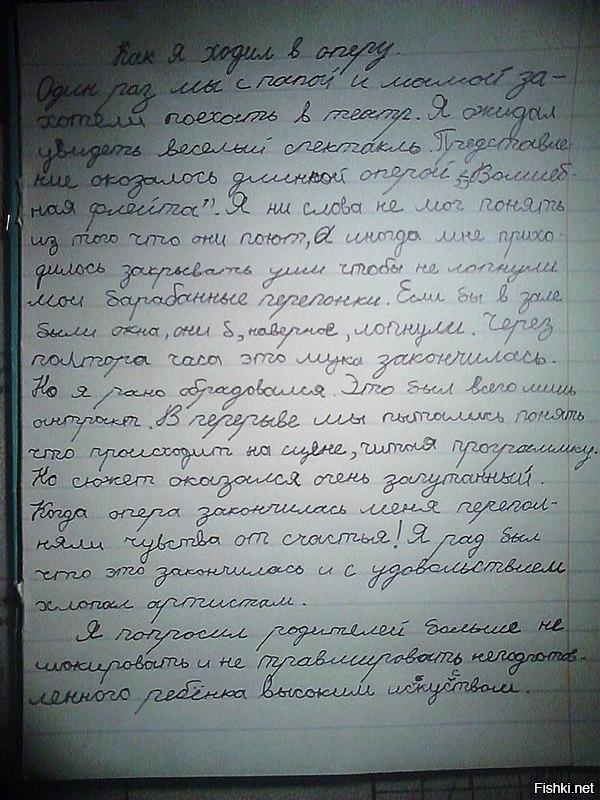 Как я ходил в оперу.
Один раз мы с папой и мамой за-
хотели поехать в театр. Я ожидал
увидеть веселый спектакль. Представле-
ние оказалось длинной оперой „Волшеб-
ная флейта”. Я ни слова не мог понять
из того что они поют, а иногда мне прихо-
дилось закрывать уши чтобы не лопнули
мои барабанные перепонки. Если бы в зале
были окна, они б, наверное, лопнули. Через
полтора часа это мука закончилась.
Но я рано обрадовался. Это был всего лишь
антракт. В перерыве мы пытались понять
что происходит на сцене, читая программку.
Но сюжет оказался очень запутанный.
Когда опера закончилась меня перепол-
няли чувства от счастья! Я рад был
что это закончилась и с удовольствием
хлопал артистам.
Я попросил родителей больше не
шокировать и не травмировать неподготов-
ленного ребёнка высоким искуством.
Fishki.net